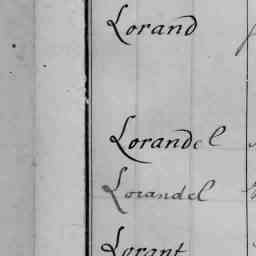 Lorand
Lorandel
Lorandel
Lorant